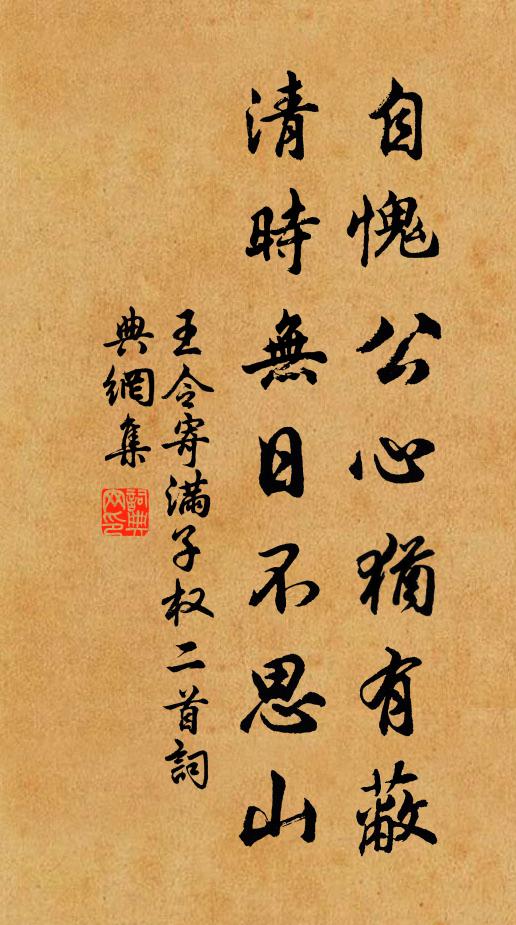 自愧公心猶有蔽
清時無日不思山
王令寄滿子权二首詞
典網集
詞典
网印